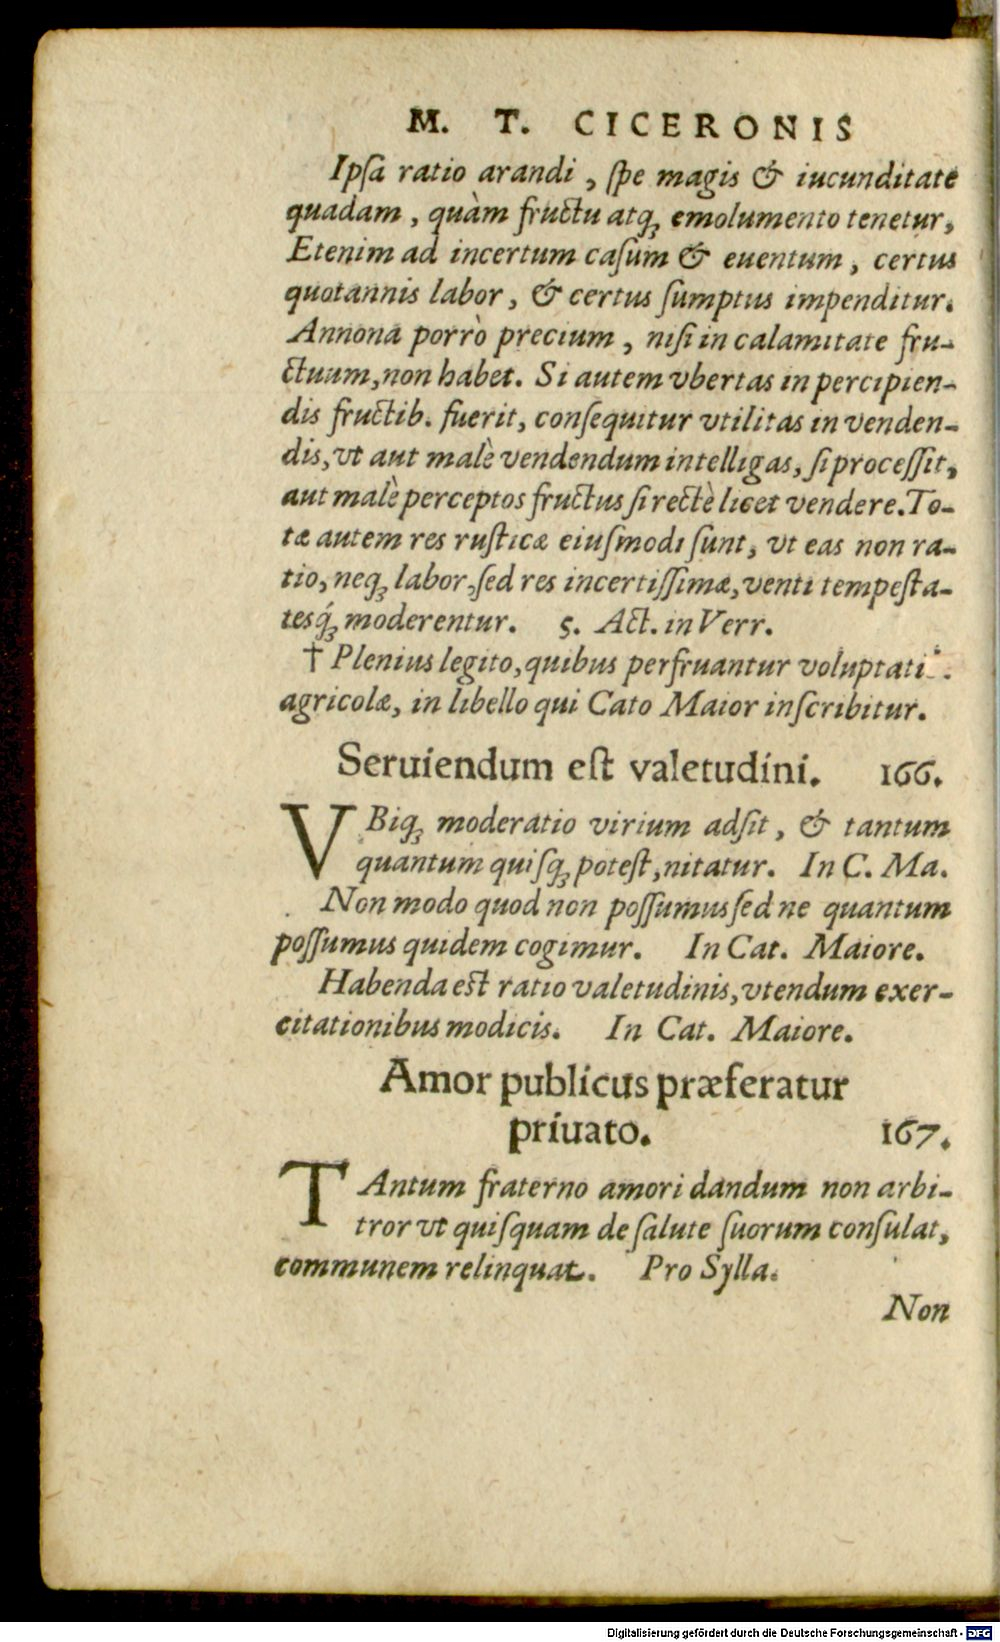 M. T. CICERONIS
Ipſa ratio arandi, ſpe magis & iucunditate
quadam, quàm fructu atqꝫ emolumento tenetur,
Etenim ad incertum caſum & euentum, certus
quotannis labor, & certus ſumptus impenditur.
Annona porrò precium, niſi in calamitate fru-
ctuum, non habet. Si autem vbertas in percipien-
dis fructib. fuerit, conſequitur vtilitas in venden-
dis, vt aut malè vendendum intelligas, ſi proceſſit,
aut malè perceptos fructus ſi rectè licet vendere. To-
tæ autem res ruſticæ eiuſmodi ſunt, vt eas non ra-
tio, neqꝫ labor, ſed res incertiſſimæ, venti tempeſta-
tesq́ꝫ moderentur. 5. Act. in Verr.
† Plenius legito, quibus perfruantur voluptati
agricolæ, in libello qui Cato Maior inſcribitur.
Seruiendum eſt valetudini. 166.
VBiqꝫ moderatio virium adſit, & tantum
quantum quiſqꝫ poteſt, nitatur. In C. Ma.
Non modo quod non poſſumus ſed ne quantum
poſſumus quidem cogimur. In Cat. Maiore.
Habenda eſt ratio valetudinis, vtendum exer-
citationibus modicis. In Cat. Maiore.
Amor publicus præferatur
priuato. 167.
TAntum fraterno amori dandum non arbi-
tror vt quiſquam de ſalute ſuorum conſulat,
communem relinquat. Pro Sylla.
Non
Digitalisierung gefördert durch die Deutsche Forschungsgemeinschaft - DFG